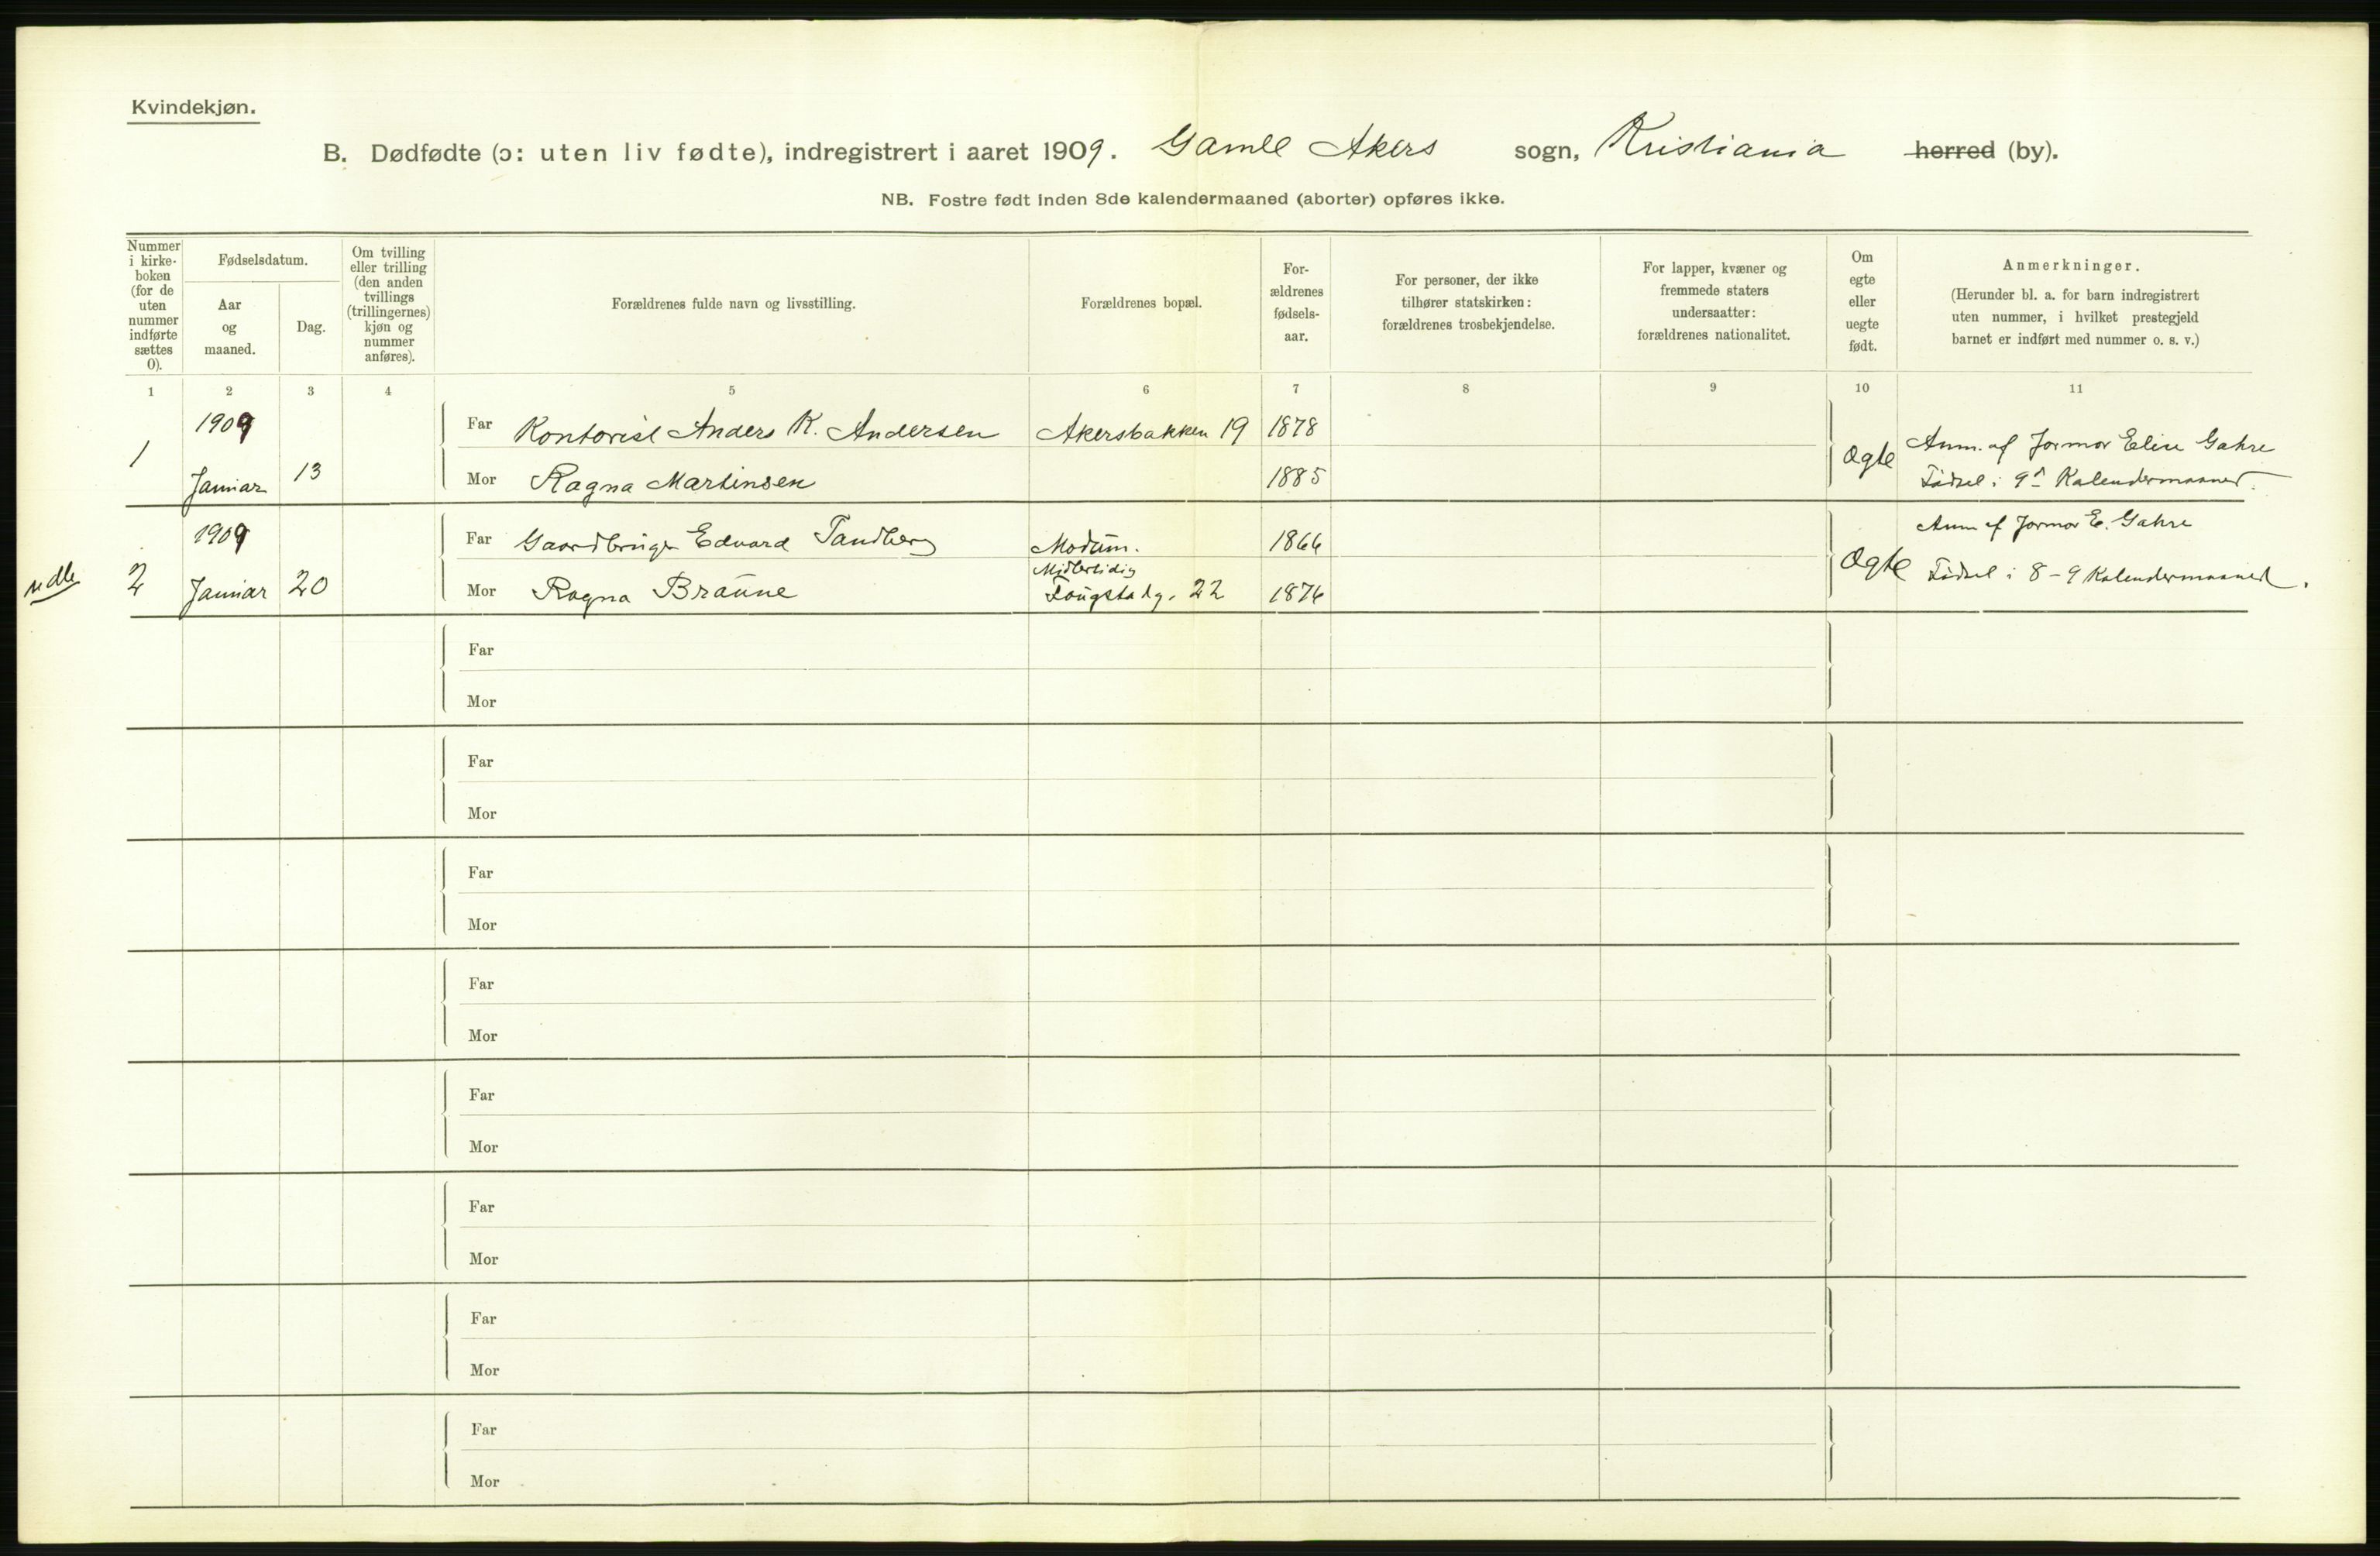 Kvindekjøn.
B. Dødfødte (ɔ: uten liv fødte), indregistrert i aaret 1909. Gamle Akers sogn, Kristiania herred (by).
NB. Fostre født inden 8de kalendermaaned (aborter) opføres ikke.
Nummer i kirke-boken (for de uten nummer indførte sættes 0).
Fødselsdatum.
Aar og maaned.
Dag.
Om tvilling eller trilling (den anden tvillings (trillingernes) kjøn og nummer anføres).
Forældrenes fulde navn og livsstilling.
Forældrenes bopæl.
For-ældrenes fødsels-aar.
For personer, der ikke tilhører statskirken: forældrenes trosbekjendelse.
For lapper, kvæner og fremmede staters undersaatter: forældrenes nationalitet.
Om egte eller uegte født.
Anmerkninger.
(Herunder bl. a. for barn indregistrert uten nummer, i hvilket prestegjeld barnet er indført med nummer o. s. v.)
1 2 3 4 5 6 7 8 9 10 11
1909
Far Kontorist Anders K. Andersen Akersbakken 19 1878
1 Januar 13 Ægte
Anm. af Jormor Elise Gahre
Mor Ragna Martinsen 1885
Fødsel i 9d Kalendermaaned.
1909
Far Gaardbruger Edvard Tandberg Modum. 1866
Anm af Jormor E. Gahre
2 Januar 20 Ægte
Midlertidig
Mor Ragna Braüne Foügstadg. 22 1876
Fødsel i 8-9 Kalendermaaned.
Far
Mor
Far
Mor
Far
Mor
Far
Mor
Far
Mor
Far
Mor
Far
Mor
Far
Mor